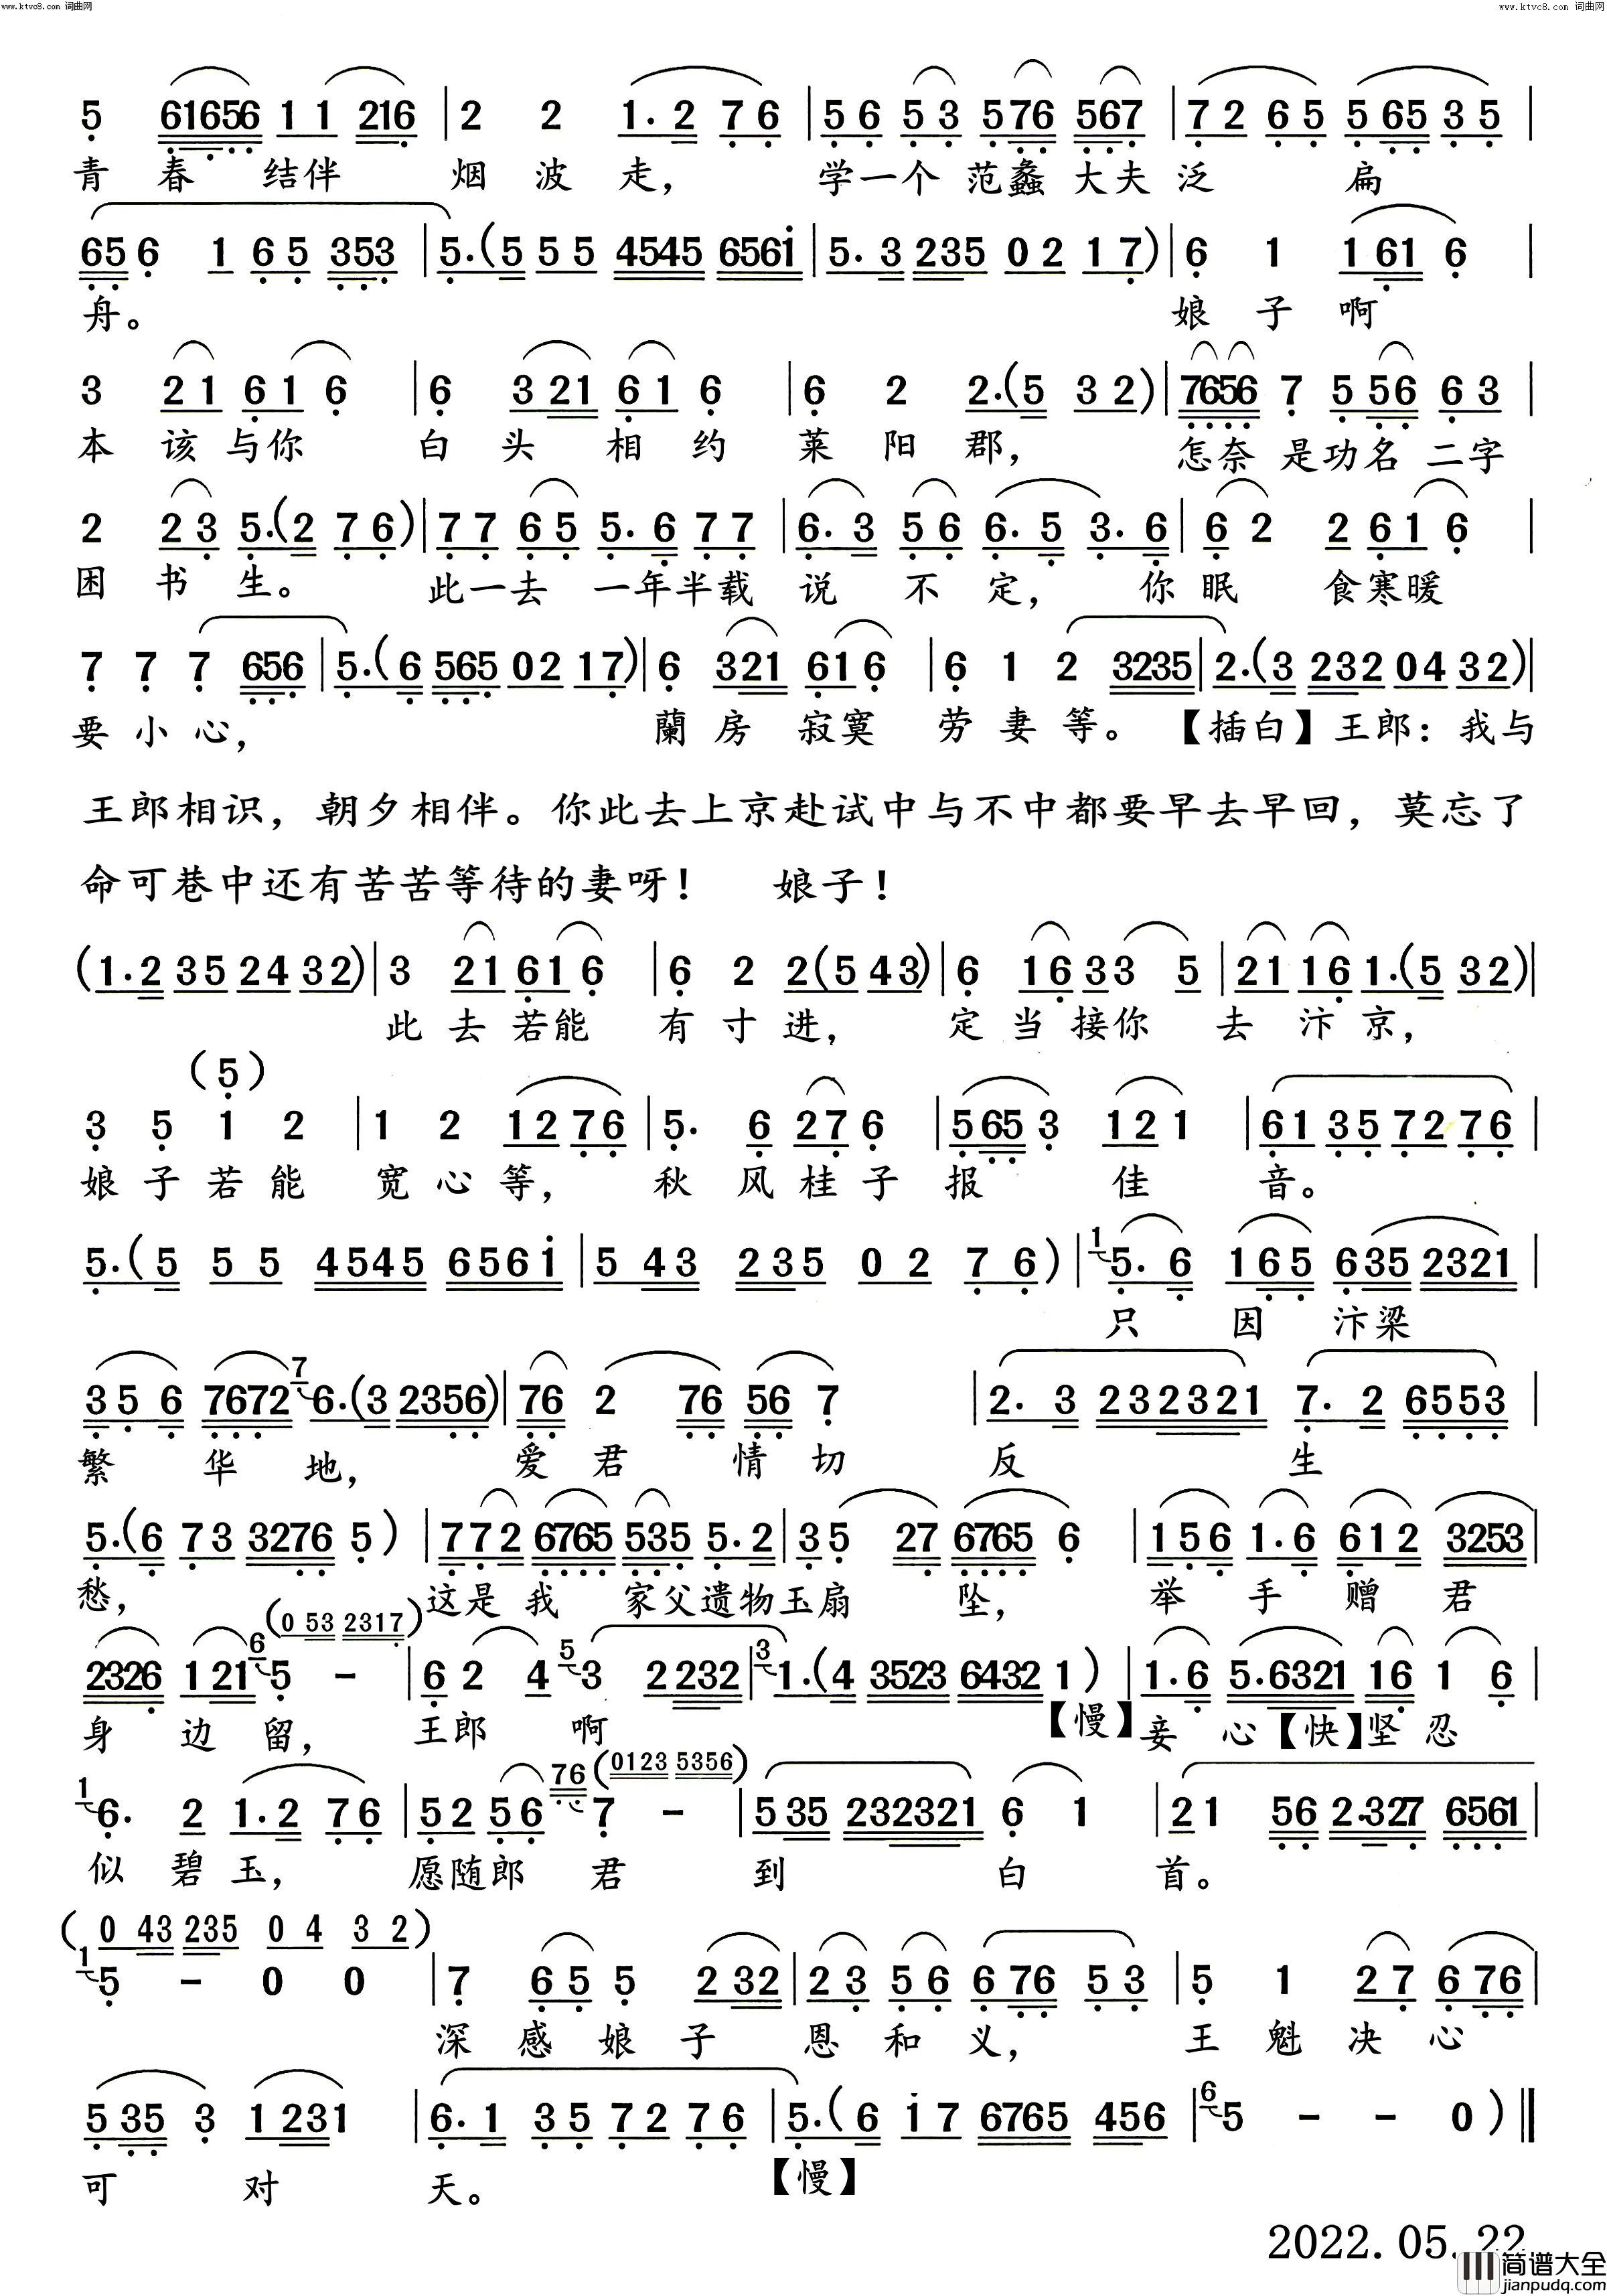 www.ktvc8.com 词曲网
www.ktvc8.com 词曲网
5 61656 1 1 216 | 2 2 1. 2 7 6 | 5 6 5 3 5 76 567 | 7 2 6 5 5 65 3 5 |
青春 结伴 烟波走， 学一个 范蠡大夫泛 扁
65 6 1 6 5 353 | 5. (5 5 5 4545 6561 | 5. 3 235 0 2 1 7) | 6 1 1 61 6 |
舟。 娘子啊
3 2 1 6 1 6 | 6 3 21 6 1 6 | 6 2 2. (5 3 2) | 7656 7 5 56 6 3 |
本该与你 白头相约 莱阳郡， 怎奈是功名二字
2 2 3 5. (2 7 6) | 7 7 6 5 5. 6 7 7 | 6. 3 5 6 6. 5 3. 6 | 6 2 2 6 1 6 |
困书生。 此一去 一年半载 说不定， 你眠 食寒暖
7 7 7 656 | 5. (6 565 0 2 1 7) | 6 321 6 1 6 | 6 1 2 3235 | 2. (3 232 0 4 3 2) |
要小心， 蘭房寂寞 劳妻等。【插白】王郎：我与
王郎相识，朝夕相伴。你此去上京赴试中与不中都要早去早回，莫忘了
命可巷中还有苦苦等待的妻呀！ 娘子！
(1. 2 3 5 2 4 3 2) | 3 2 1 6 1 6 | 6 2 2 (5 4 3) | 6 1 6 3 3 5 | 2 1 1 6 1. (5 3 2) |
此去若能 有寸进， 定当接你 去汴京，
(5)
3 5 1 2 | 1 2 1 2 7 6 | 5. 6 2 7 6 | 5 65 3 1 2 1 | 6 1 3 5 7 2 7 6 |
娘子若能 宽心等， 秋风桂子报佳音。
5. (5 5 5 4545 6561 | 5 43 235 0 2 7 6) | 1 5. 6 1 6 5 6 35 2321 |
只因汴梁
3 5 6 7672 7 6. (3 2356) | 76 2 76 56 7 | 2. 3 232321 7. 2 6553 |
繁华地， 爱君情切反生
5. (6 7 3 3276 5) | 7 7 2 6765 535 5. 2 | 3 5 27 6765 6 | 1 5 6 1. 6 6 1 2 3253 |
愁， 这是我 家父遗物玉扇坠， 举手赠君
(0 53 2317)
2326 1 21 6 5 - | 6 2 4 5 3 2 232 | 3 1. (4 3523 6432 1) | 1. 6 5. 6321 16 1 6 |
身边留， 王郎啊 【慢】妾心【快】坚忍
76 (0123 5356)
1 6. 2 1. 2 7 6 | 5 2 5 6 7 - | 5 35 232321 6 1 | 2 1 56 2.327 6561 |
似碧玉， 愿随郎君到白首。
(0 43 235 0 4 3 2)
1 5 - 0 0 | 7 6 5 5 2 32 | 2 3 5 6 6 76 5 3 | 5 1 2 7 6 76 |
深感娘子恩和义， 王魁决心
5 35 3 1 231 | 6. 1 3 5 7 2 7 6 | 5. (6 1 7 6765 456 | 6 5 - - 0) ‖
可对天。 【慢】
2022.05.22
简谱大全
jianpudq.com